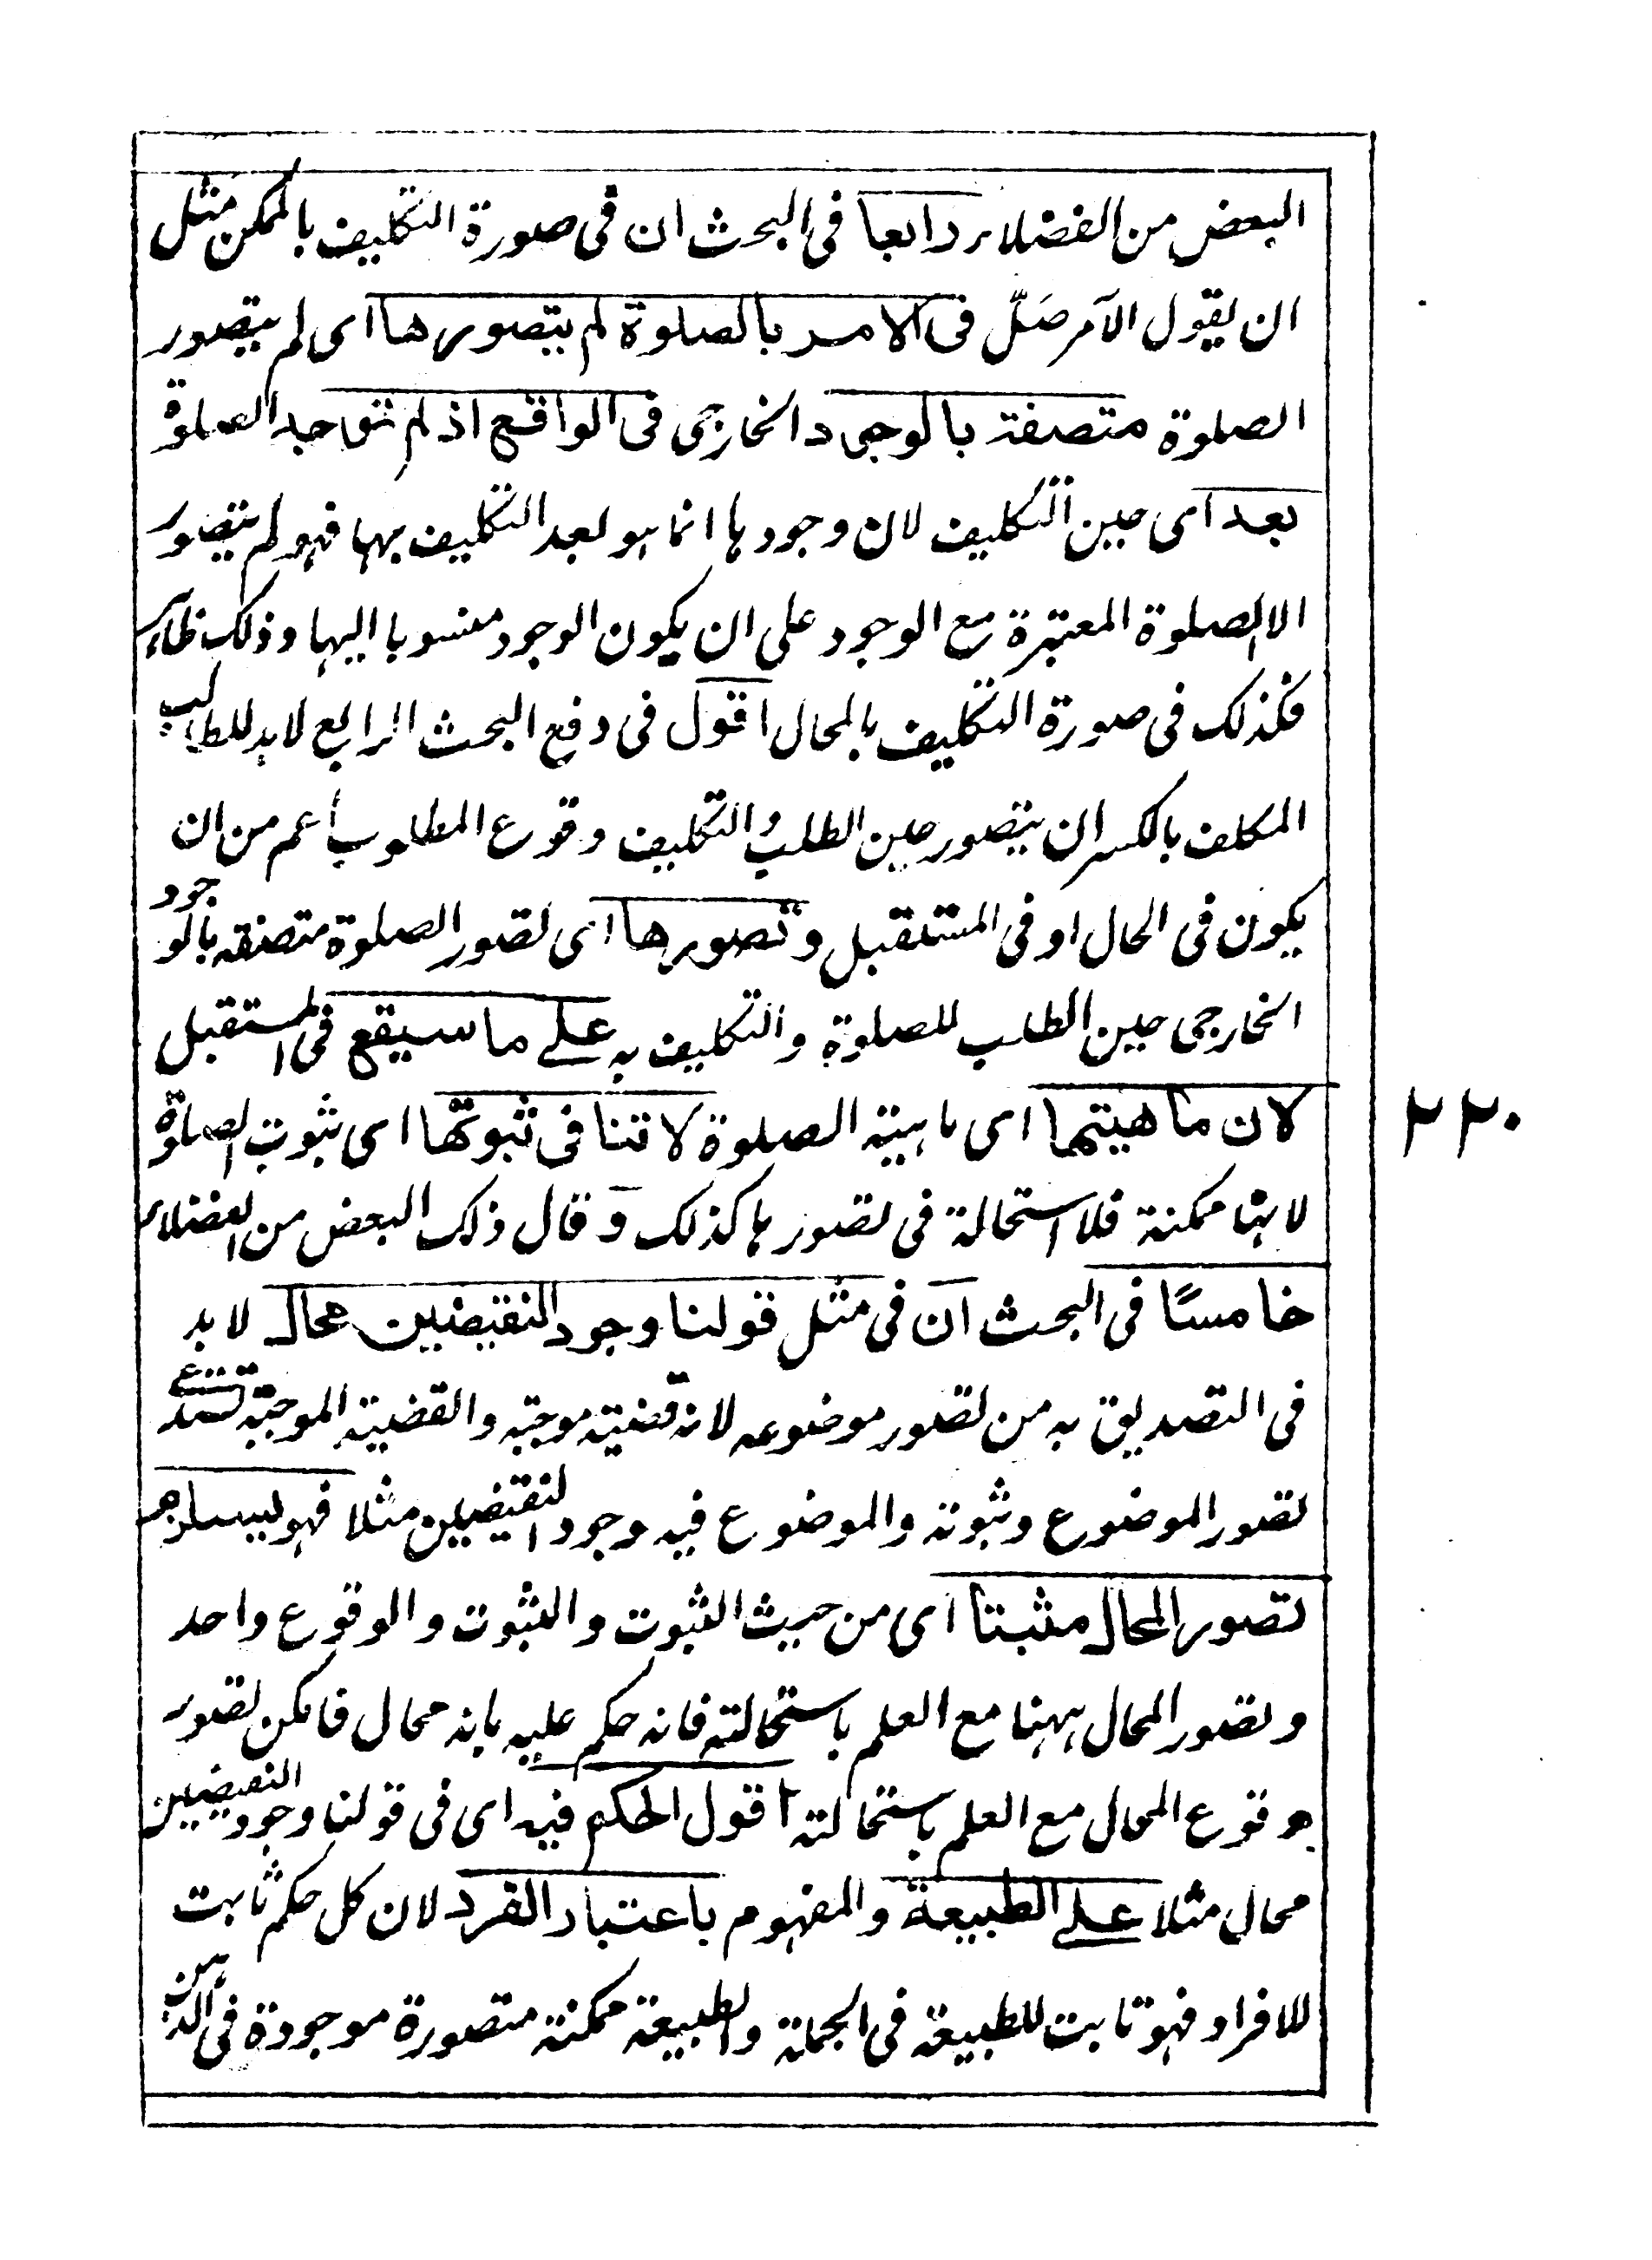 البعض من الفضلاء رابعا في البحث ان في صورة التكليف بالممكن مثل
ان يقول الآمر صَلِّ في الامر بالصلوة لم يتصورها اى لم يتصور
الصلوة متصفة بالوجود الخارجى في الواقع اذ لم توجد الصلوة
بعد اى حين التكليف لان وجودها انما هو بعد التكليف بها فهو لم يتصور
الا الصلوة المعتبرة مع الوجود على ان يكون الوجود منسوبا اليها وذلك ظاهر
فكذلك في صورة التكليف بالمحال اقول في دفع البحث الرابع لابد للطالب
المكلف بالكسر ان يتصور حين الطلب والتكليف وقوع المطلوب اعم من ان
يكون في الحال او في المستقبل وتصورها اى تصور الصلوة متصفة بالوجود
الخارجى حين الطلب للصلوة والتكليف به على ما سيقع في المستقبل
لان ماهيتها اى ماهية الصلوة لا تنافى ثبوتها اى ثبوت الصلوة
لانها ممكنة فلا استحالة في تصورها كذلك وَ قال ذلك البعض من الفضلاء
٢٢٠
خامسًا في البحث ان في مثل قولنا وجود النقيضين محال لابد
في التصديق به من تصور موضوعه لانه قضية موجبة والقضية الموجبة تستدعى
تصور الموضوع وثبوته والموضوع فيه وجود النقيضين مثلا فهو يستلزم
تصور المحال مثبتا اى من حيث الثبوت والثبوت والوقوع واحد
وتصور المحال ههنا مع العلم باستحالته فانه حكم عليه بانه محال فامكن تصور
وقوع المحال مع العلم باستحالته اقول الحكم فيه اى في قولنا وجود النقيضين
محال مثلا على الطبيعة والمفهوم باعتبار الفرد لان كل حكم ثابت
للافراد فهو ثابت للطبيعة في الجملة والطبيعة ممكنة متصورة موجودة في الذهن